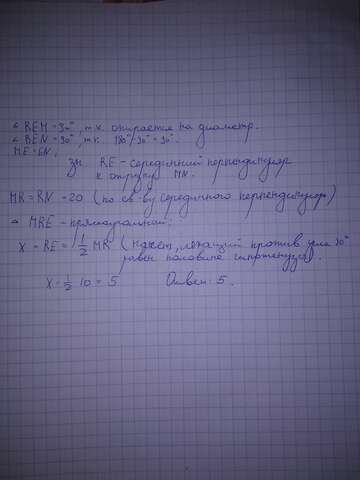 ∠ REM = 90°, т.к. опирается на диаметр.
∠ REN = 90°, т.к. 180° / 90° = 90°.
ME = EN,
зн. RE - серединный перпендикуляр
к отрезку MN.
MR = RN = 20 (по св-ву серединного перпендикуляра)
△ MRE - прямоугольный:
X = RE = 1/2 MR (катет, лежащий против угла 30°
равен половине гипотенузы).
X = 1/2 · 10 = 5 Ответ: 5.